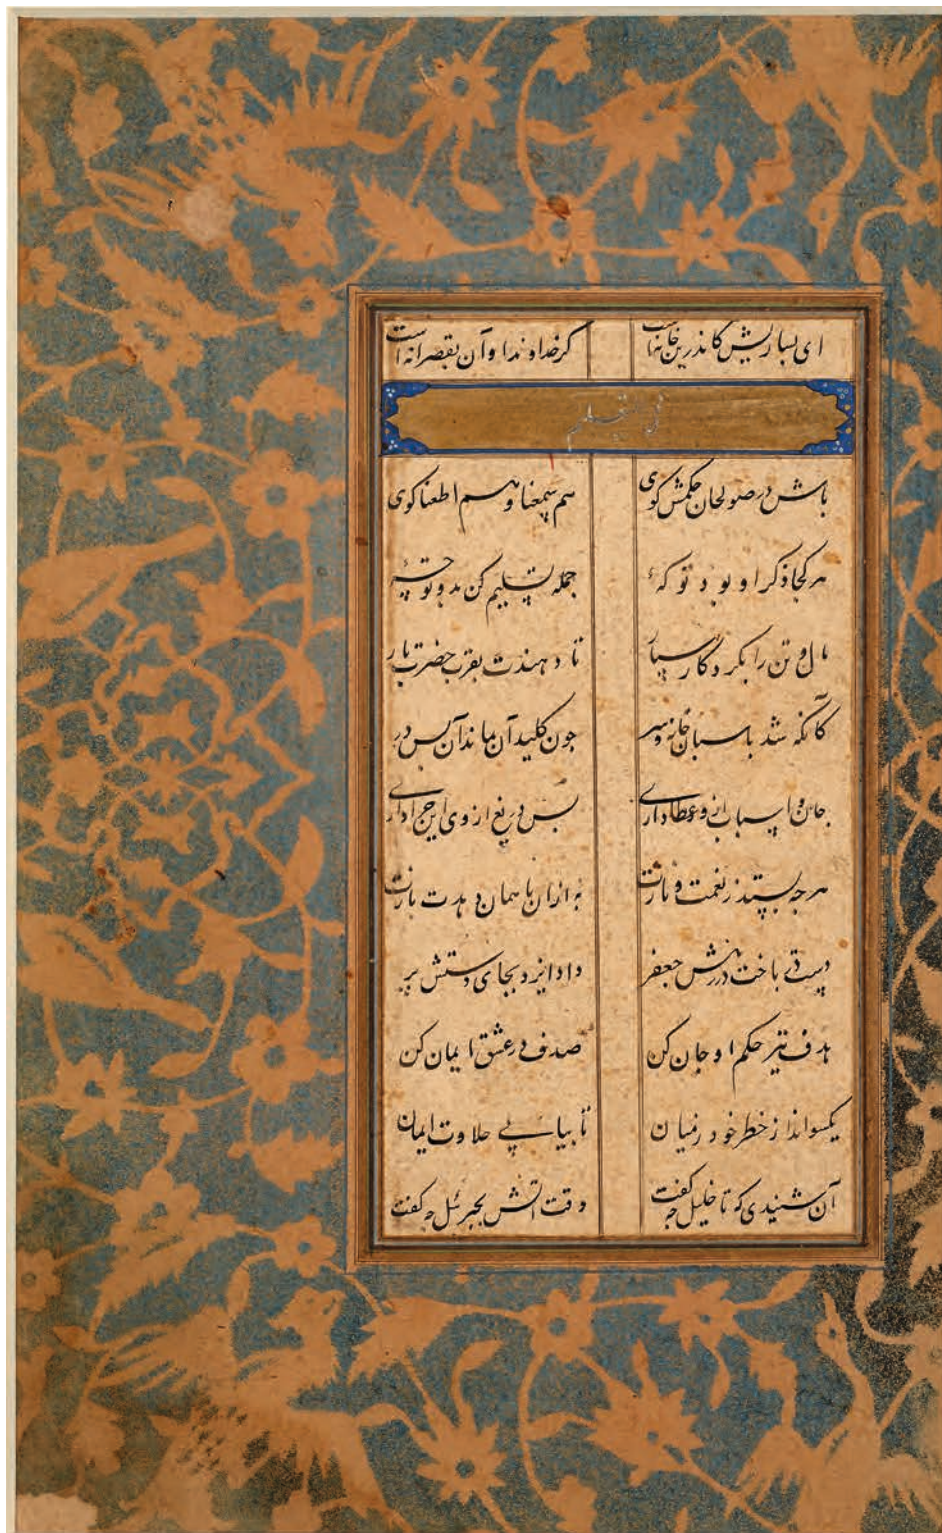 ای بسا ریش کاندرین خانه است کر خداوندا و آن
فی التسلیم
باش در صولجان حکمش کوی هم سمعنا و هم اطعنا کوی
هر کجا ذکر او بود تو کهٔ جمله تسلیم کن بدو تو چهٔ
مال و تن را بکردکار سپار تا دهندت بقرب حضرت بار
کانکه شد پاسبان خانه و سر جون کلید آن ماند آن پس در
جان و اسباب ازو عطا داری پس دریغ از وی این چرا داری
هر جه بستد ز نعمت و نازت به ازان یا همان دهدت بازت
دست در باخت در رهش جعفر داد ایزد بجای دستش پر
هدف تیر حکم او جان کن صدف در عشق ایمان کن
یکسو انداز خطر خود ز میان تا بیابی حلاوت ایمان
آن شنیدی که تا خلیل چه کفت وقت آتش بجبرئیل چه کفت